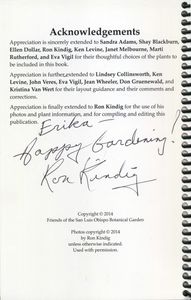 Acknowledgements
Appreciation is sincerely extended to Sandra Adams, Shay Blackburn,
Ellen Dollar, Ron Kindig, Ken Levine, Janet Melbourne, Marti
Rutherford, and Eva Vigil for their thoughtful choices of the plants to
be included in this book.
Appreciation is further extended to Lindsey Collinsworth, Ken
Levine, John Veres, Eva Vigil, Jean Wheeler, Don Gruenwald, and
Kristina Van Wert for their layout guidance and their comments and
corrections.
Appreciation is finally extended to Ron Kindig for the use of his
photos and plant information, and for compiling and editing this
publication.
Erika
Happy Gardening!
Ron Kindig
Copyright © 2014
Friends of the San Luis Obispo Botanical Garden
Photos copyright © 2014
by Ron Kindig
unless otherwise indicated.
Used with permission.